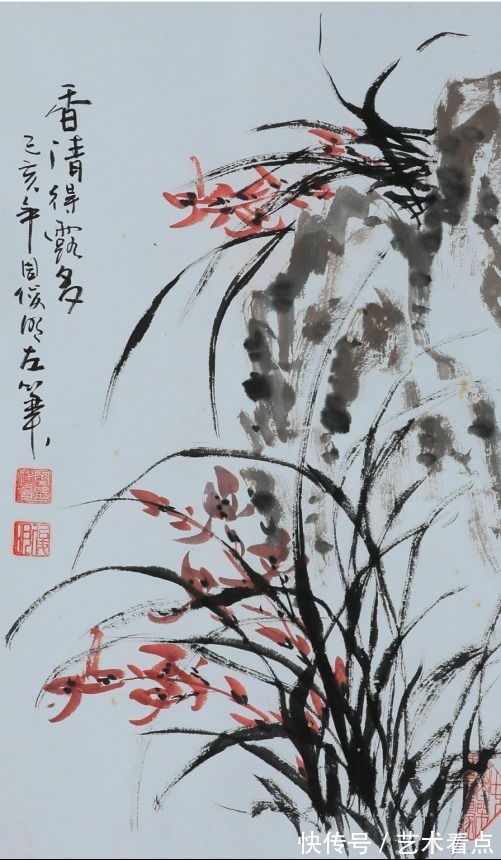 香清得露多
己亥年周俊明左筆
快传号/艺术看点